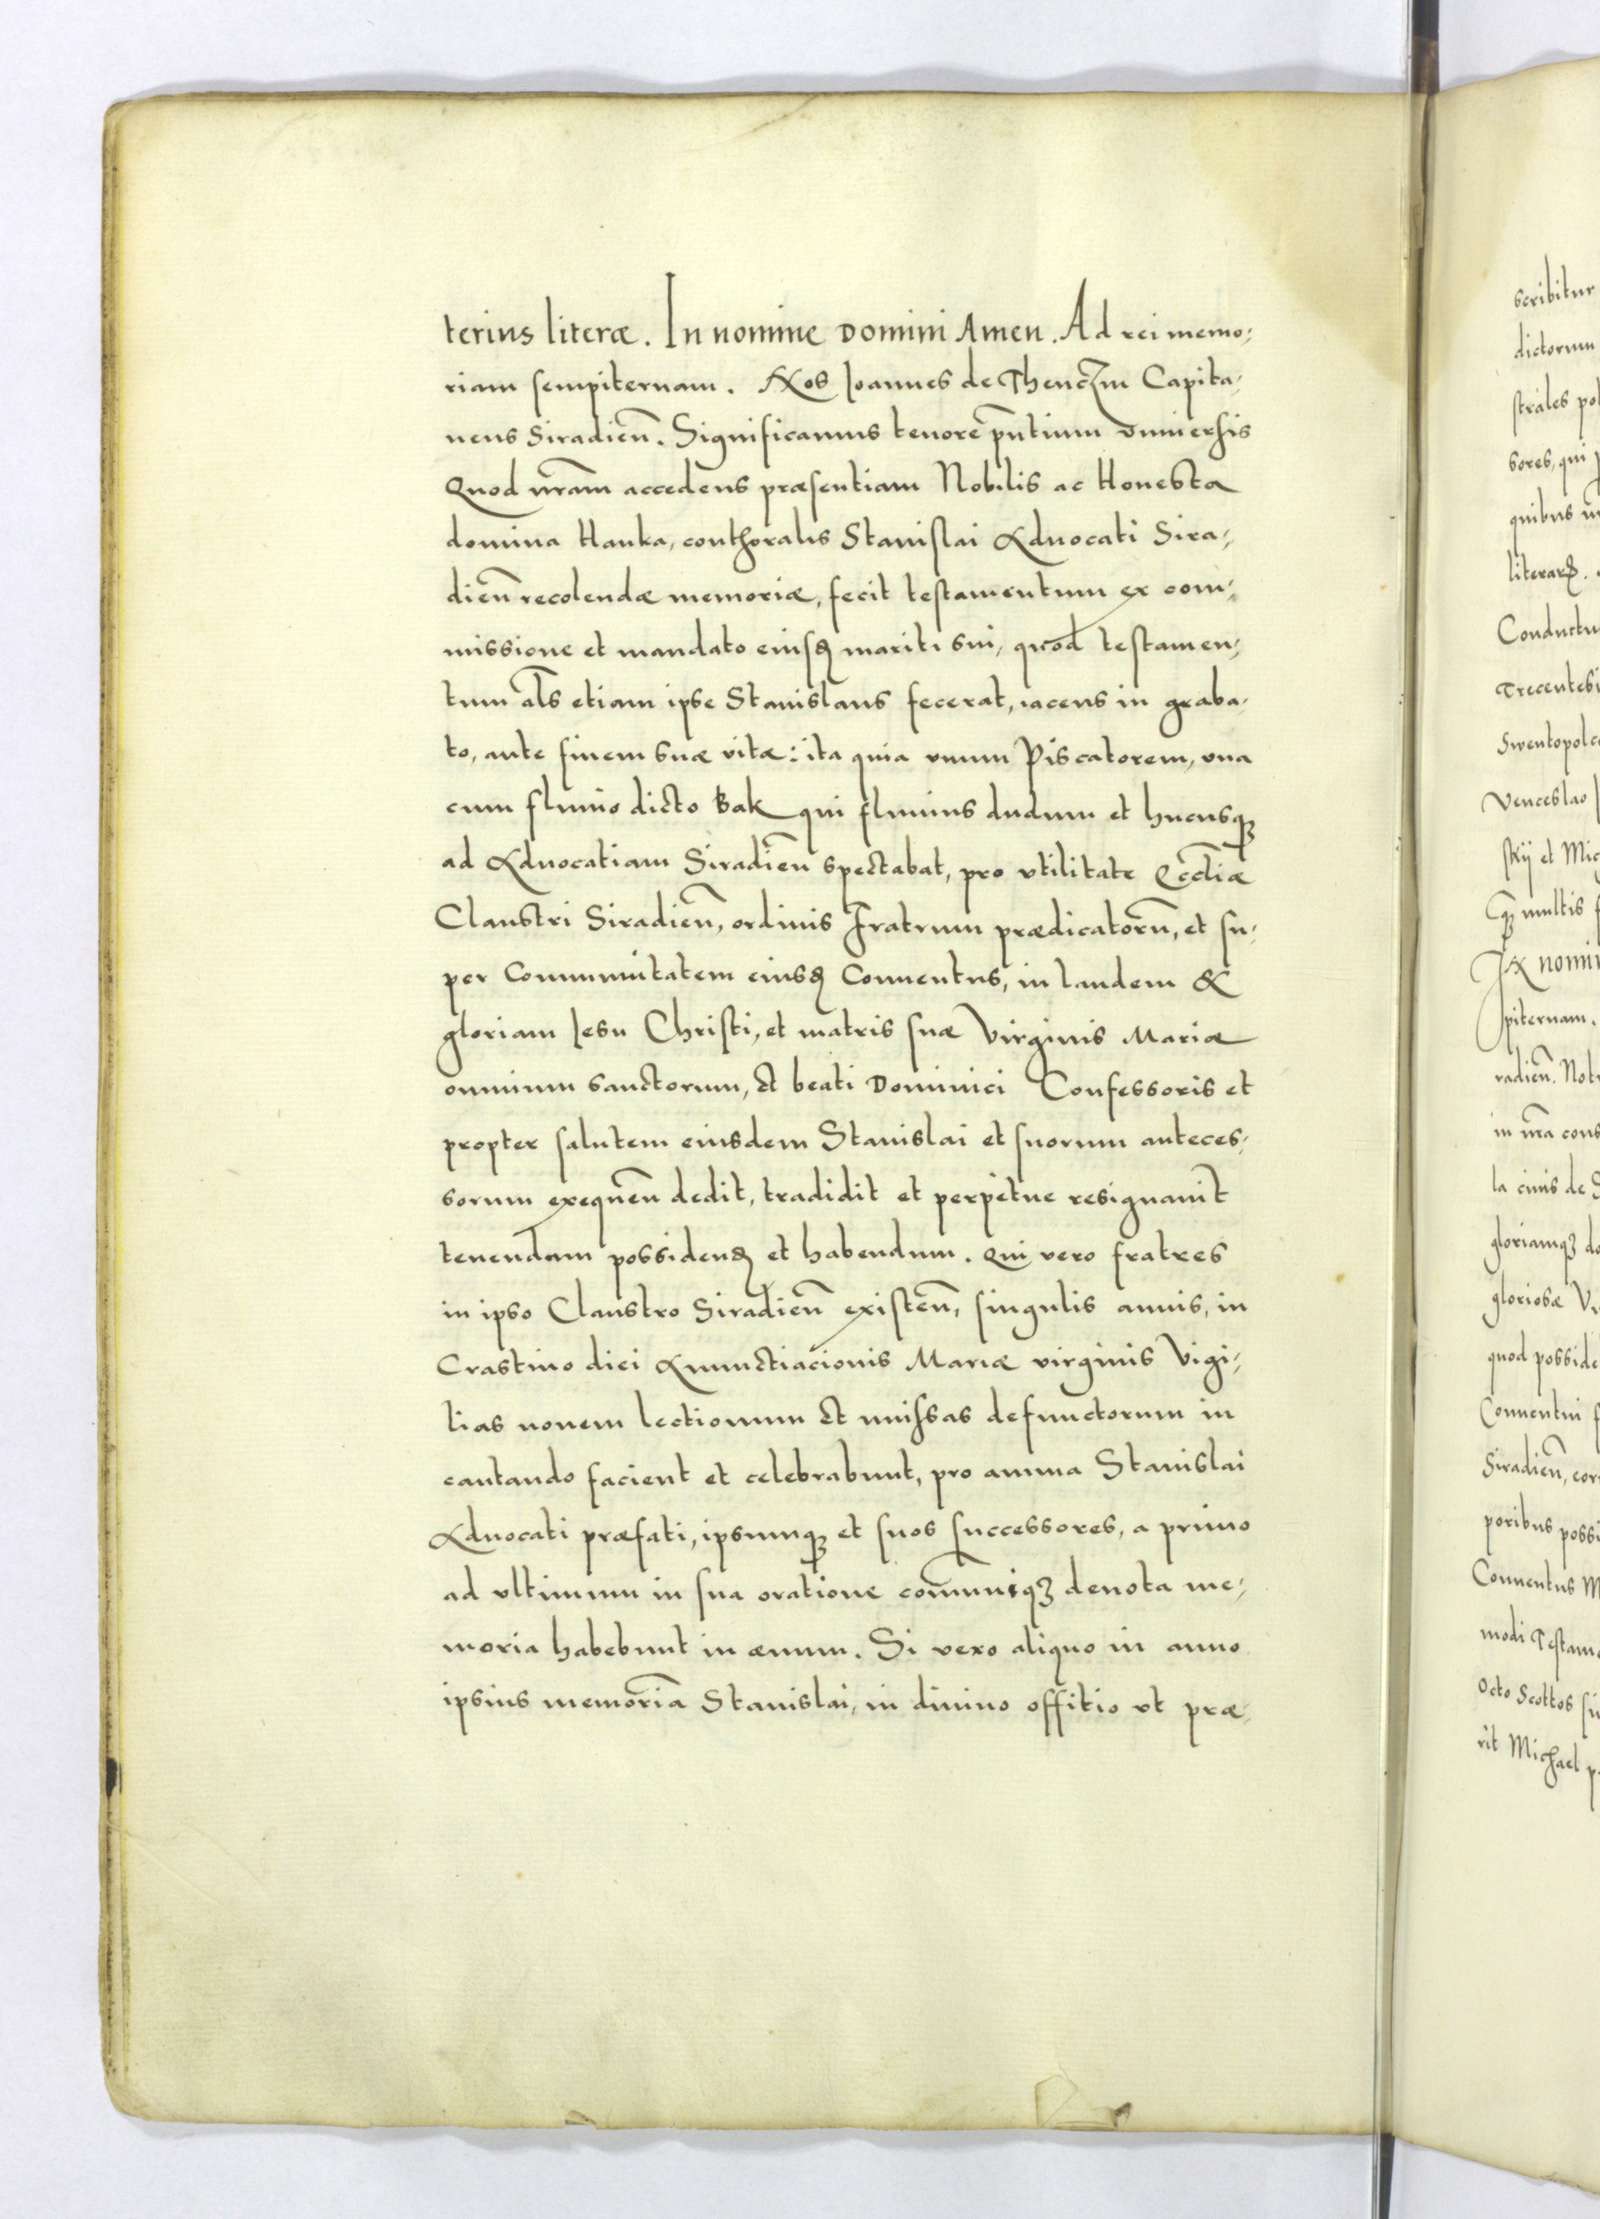 terius literæ. In nomine Domini Amen. Ad rei memo-
riam sempiternam. Nos Joannes de Thenczin Capita-
neus Siradieñ. Significamus tenorē pñtium vniuersis
Quod nr̃am accedens præsentiam Nobilis ac Honesta
domina Hanka, conthoralis Stanislai Aduocati Sira-
dieñ recolendæ memoriæ, fecit testamentum ex com-
missione et mandato eiusd mariti sui, quod testamen-
tum al̃s etiam ipse Stanislaus fecerat, iacens in graba-
to, ante finem suæ vitæ: ita quia vnum Piscatorem, vna
cum fluuio dicto Bak qui fluuius dudum et hucusqꝫ
ad Aduocatiam Siradieñ spectabat, pro vtilitate Eccl̃iæ
Claustri Siradieñ, ordinis Fratrum prædicatorũ, et su-
per Communitatem eiusd Conuentus, in laudem &
gloriam Jesu Christi, et matris suæ Virginis Mariæ
omnium sanctorum, et beati Dominici Confessoris et
propter salutem eiusdem Stanislai et suorum anteces-
sorum exequeñ dedit, tradidit et perpetue resignauit
tenendam possidend et habendum. Qui vero fratres
in ipso Claustro Siradieñ existeñ, singulis annis, in
Crastino diei Annunctiacionis Mariæ virginis Vigi-
lias nouem lectionum et missas defunctorum in
cantando facient et celebrabunt, pro anima Stanislai
Aduocati præfati, ipsumqꝫ et suos successores, a primo
ad vltimum in sua oratione com̃uniqꝫ deuota me-
moria habebunt in æuum. Si vero aliquo in anno
ipsius memoria Stanislai, in diuino offitio vt præ-
scribitur
dictorum
strales
sores, qui
quibus
Trecentesi
Venceslao
multis
nomin
piternam.
radieñ.
in nr̃a cons
la ciuis de S
gloriamqꝫ
gloriosæ
quod posside
Conuentui
Siradieñ,
poribus possi
Conuentus
modi Testam
Octo Scottos
rit Michael